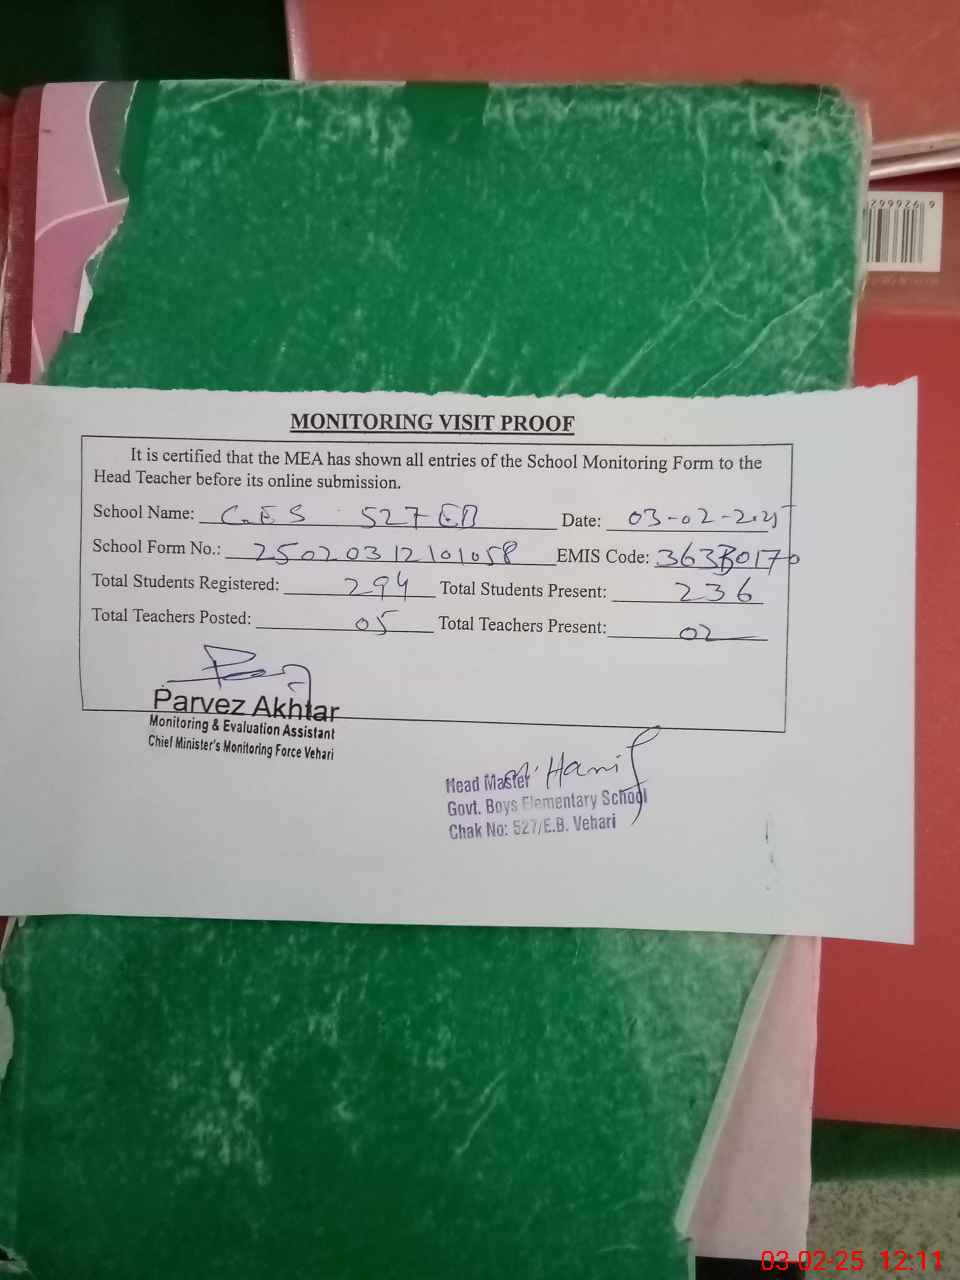 299926 6
MONITORING VISIT PROOF
It is certified that the MEA has shown all entries of the School Monitoring Form to the
Head Teacher before its online submission.
School Name: GES 527 EB Date: 03-02-2025
School Form No.: 25020312101058 EMIS Code: 36330170
Total Students Registered: 294 Total Students Present: 236
Total Teachers Posted: 05 Total Teachers Present: 02
Parvez Akhtar
Monitoring & Evaluation Assistant
Chief Minister's Monitoring Force Vehari
M. Hanif
Head Master
Govt. Boys Elementary School
Chak No: 527/E.B. Vehari
03-02-25 12:11